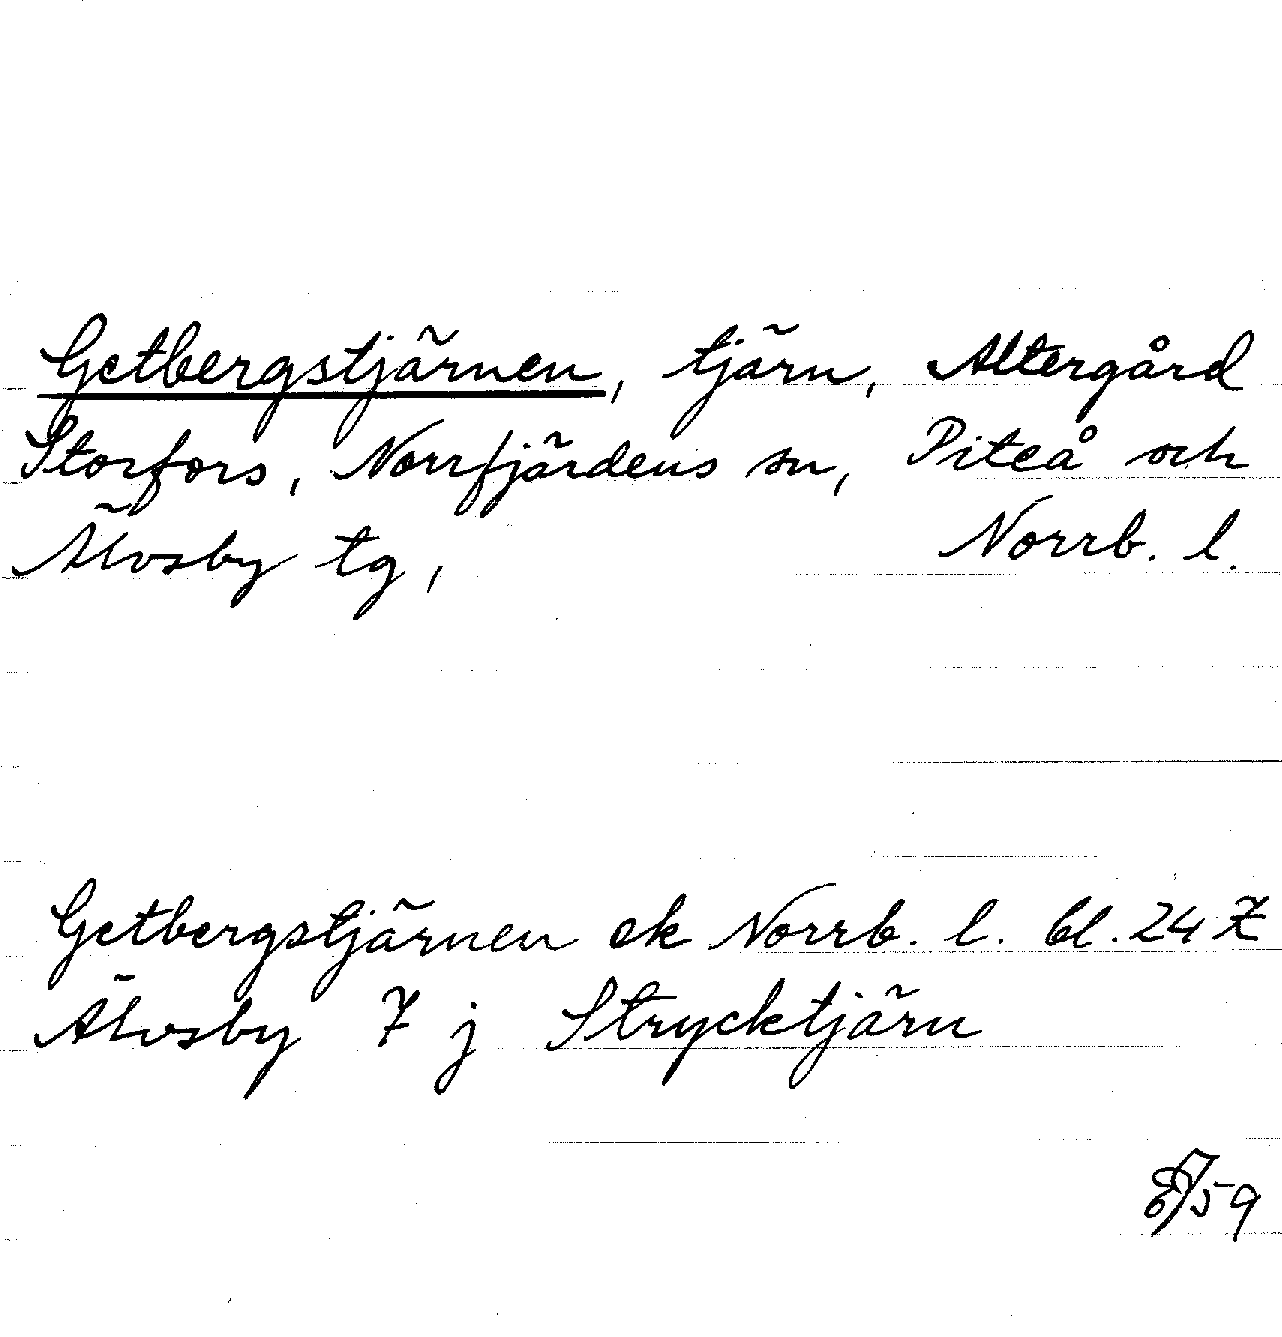 Getbergstjärnen, tjärn, Altergård
Storfors, Norrfjärdens sn, Piteå och
Älvsby tg, Norrb. l.
Getbergstjärnen ek Norrb. l. bl. 24 Z
Älvsby 7 j Strycktjärn
59